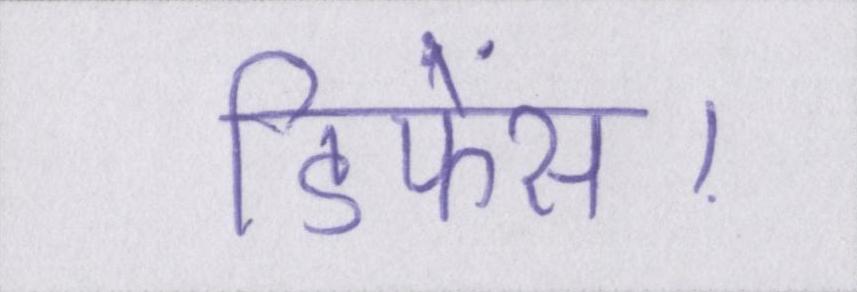 डिफेंस।